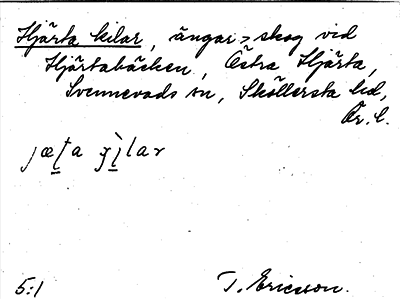 Hjärta kilar, ängar > skog vid
Hjärtabäcken, Östra Hjärta,
Svennevads sn, Sköllersta hd,
Ör. l.
5:1 T. Ericsson.